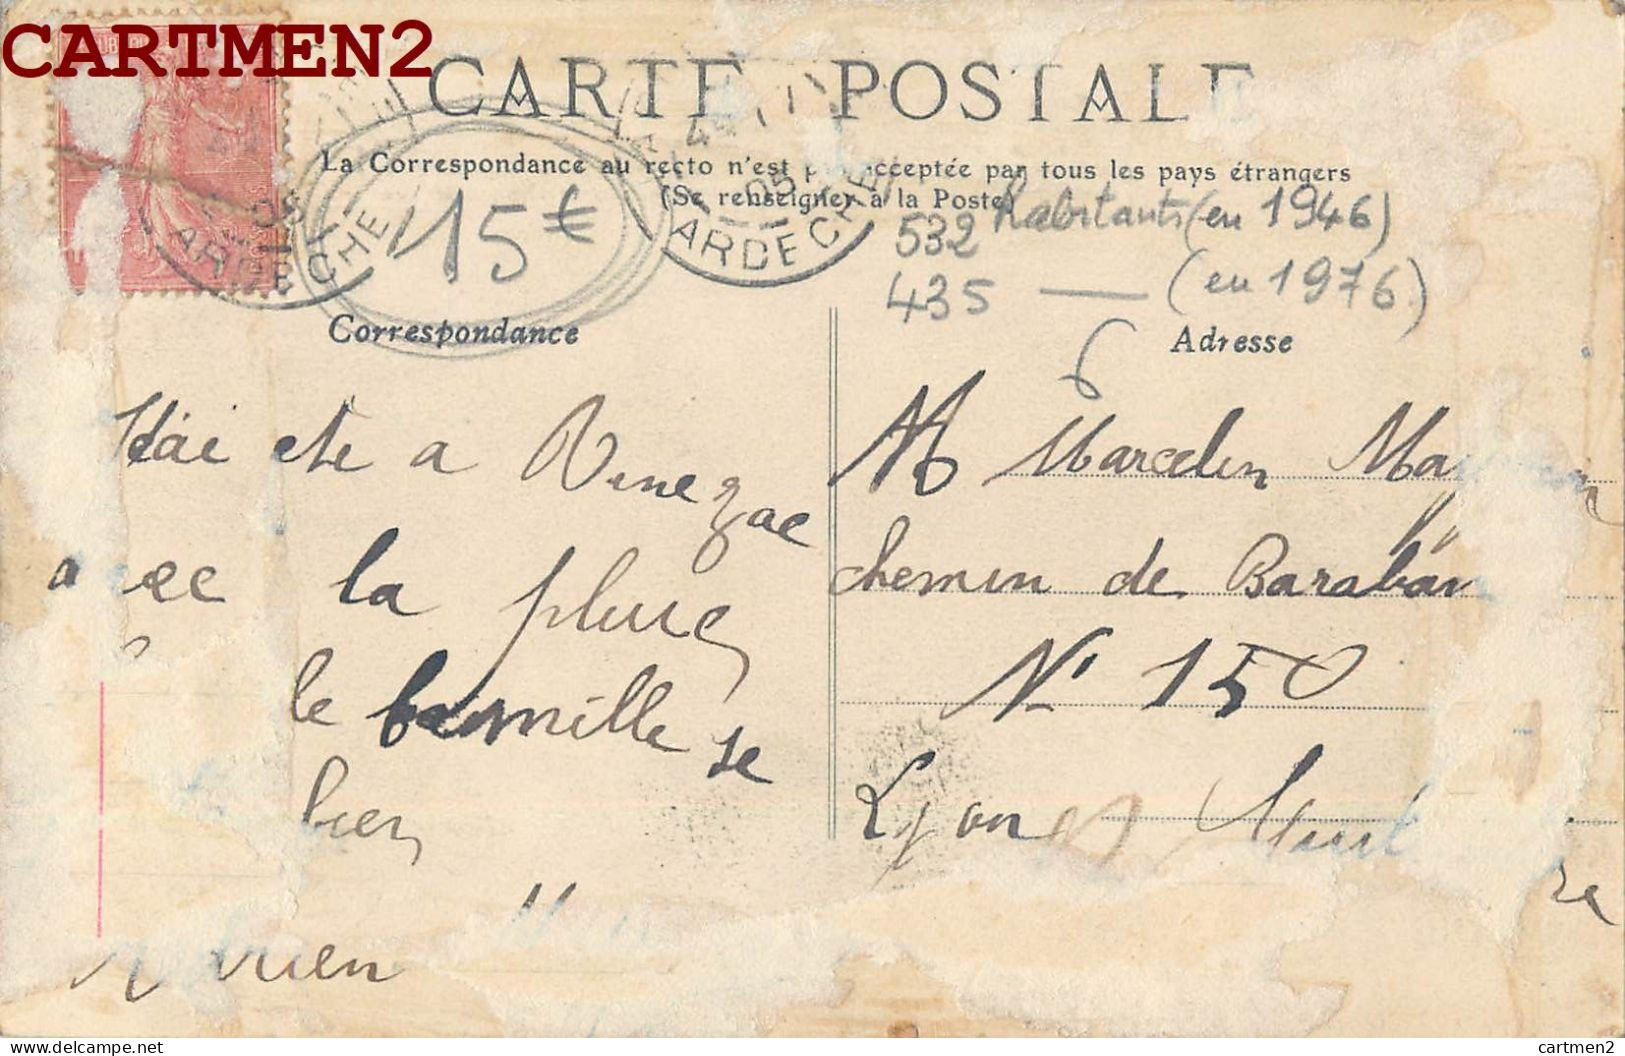 CARTMEN2
CARTE POSTALE
La Correspondance au recto n'est pas acceptée par tous les pays étrangers
(Se renseigner à la Poste)
15€
05
ARDECHE
05
ARDECHE
532 habitants (en 1946)
435 — (en 1976)
Correspondance
Adresse
J'ai ete a Vinezac
avec la pluie
le famille se
bien
Adrien
M Marcelin
chemin de Baraban
N° 150
Lyon
cartmen2
Delcampe.net